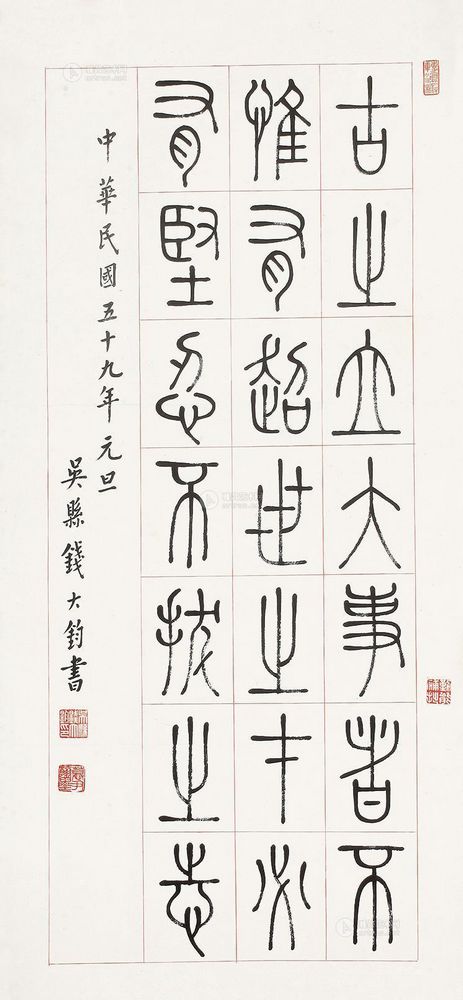 古之立大事者不
惟有超世之才必
有堅忍不拔之志
中華民國五十九年元旦
吳縣錢大鈞書